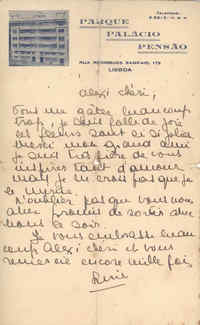 PARQUE
PALÁCIO
PENSÃO
RUA RODRIGUES SAMPAIO,
LISBOA
Alexi chéri,
Vous me gâtez beaucoup
trop, je suis folle de joie
les fleurs sont si jolies
merci mon grand ami
je suis très fière de vous
inspirer tant d'amour
mais je ne crois pas que je
le mérite.
N'oubliez pas que vous nous
avez promis de sortir avec
nous ce soir.
Je vous embrasse beau
coup Alexi chéri et vous
remercie encore mille fois